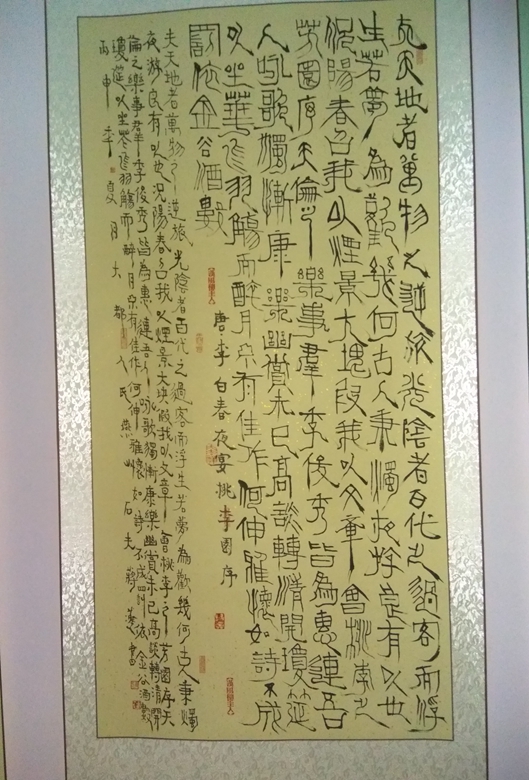 夫天地者萬物之逆旅光陰者百代之過客而浮
生若夢為歡幾何古人秉燭夜游良有以也
況陽春召我以煙景大塊假我以文章會桃李之
芳園序天倫之樂事羣季俊秀皆為惠連吾
人詠歌獨慚康樂幽賞未已高談轉清開瓊筵
以坐華飛羽觴而醉月不有佳作何伸雅懷如詩不成
罰依金谷酒數
唐李白春夜宴桃李園序
夫天地者萬物之逆旅光陰者百代之過客而浮生若夢為歡幾何古人秉燭
夜游良有以也況陽春召我以煙景大塊假我以文章會桃李之芳園序天
倫之樂事羣季俊秀皆為惠連吾人詠歌獨慚康樂幽賞未已高談轉清開
瓊筵以坐花飛羽觴而醉月不有佳作何伸雅懷如詩不成罰依金谷酒數
丙申季夏月大都人氏燕山石夫蔣書